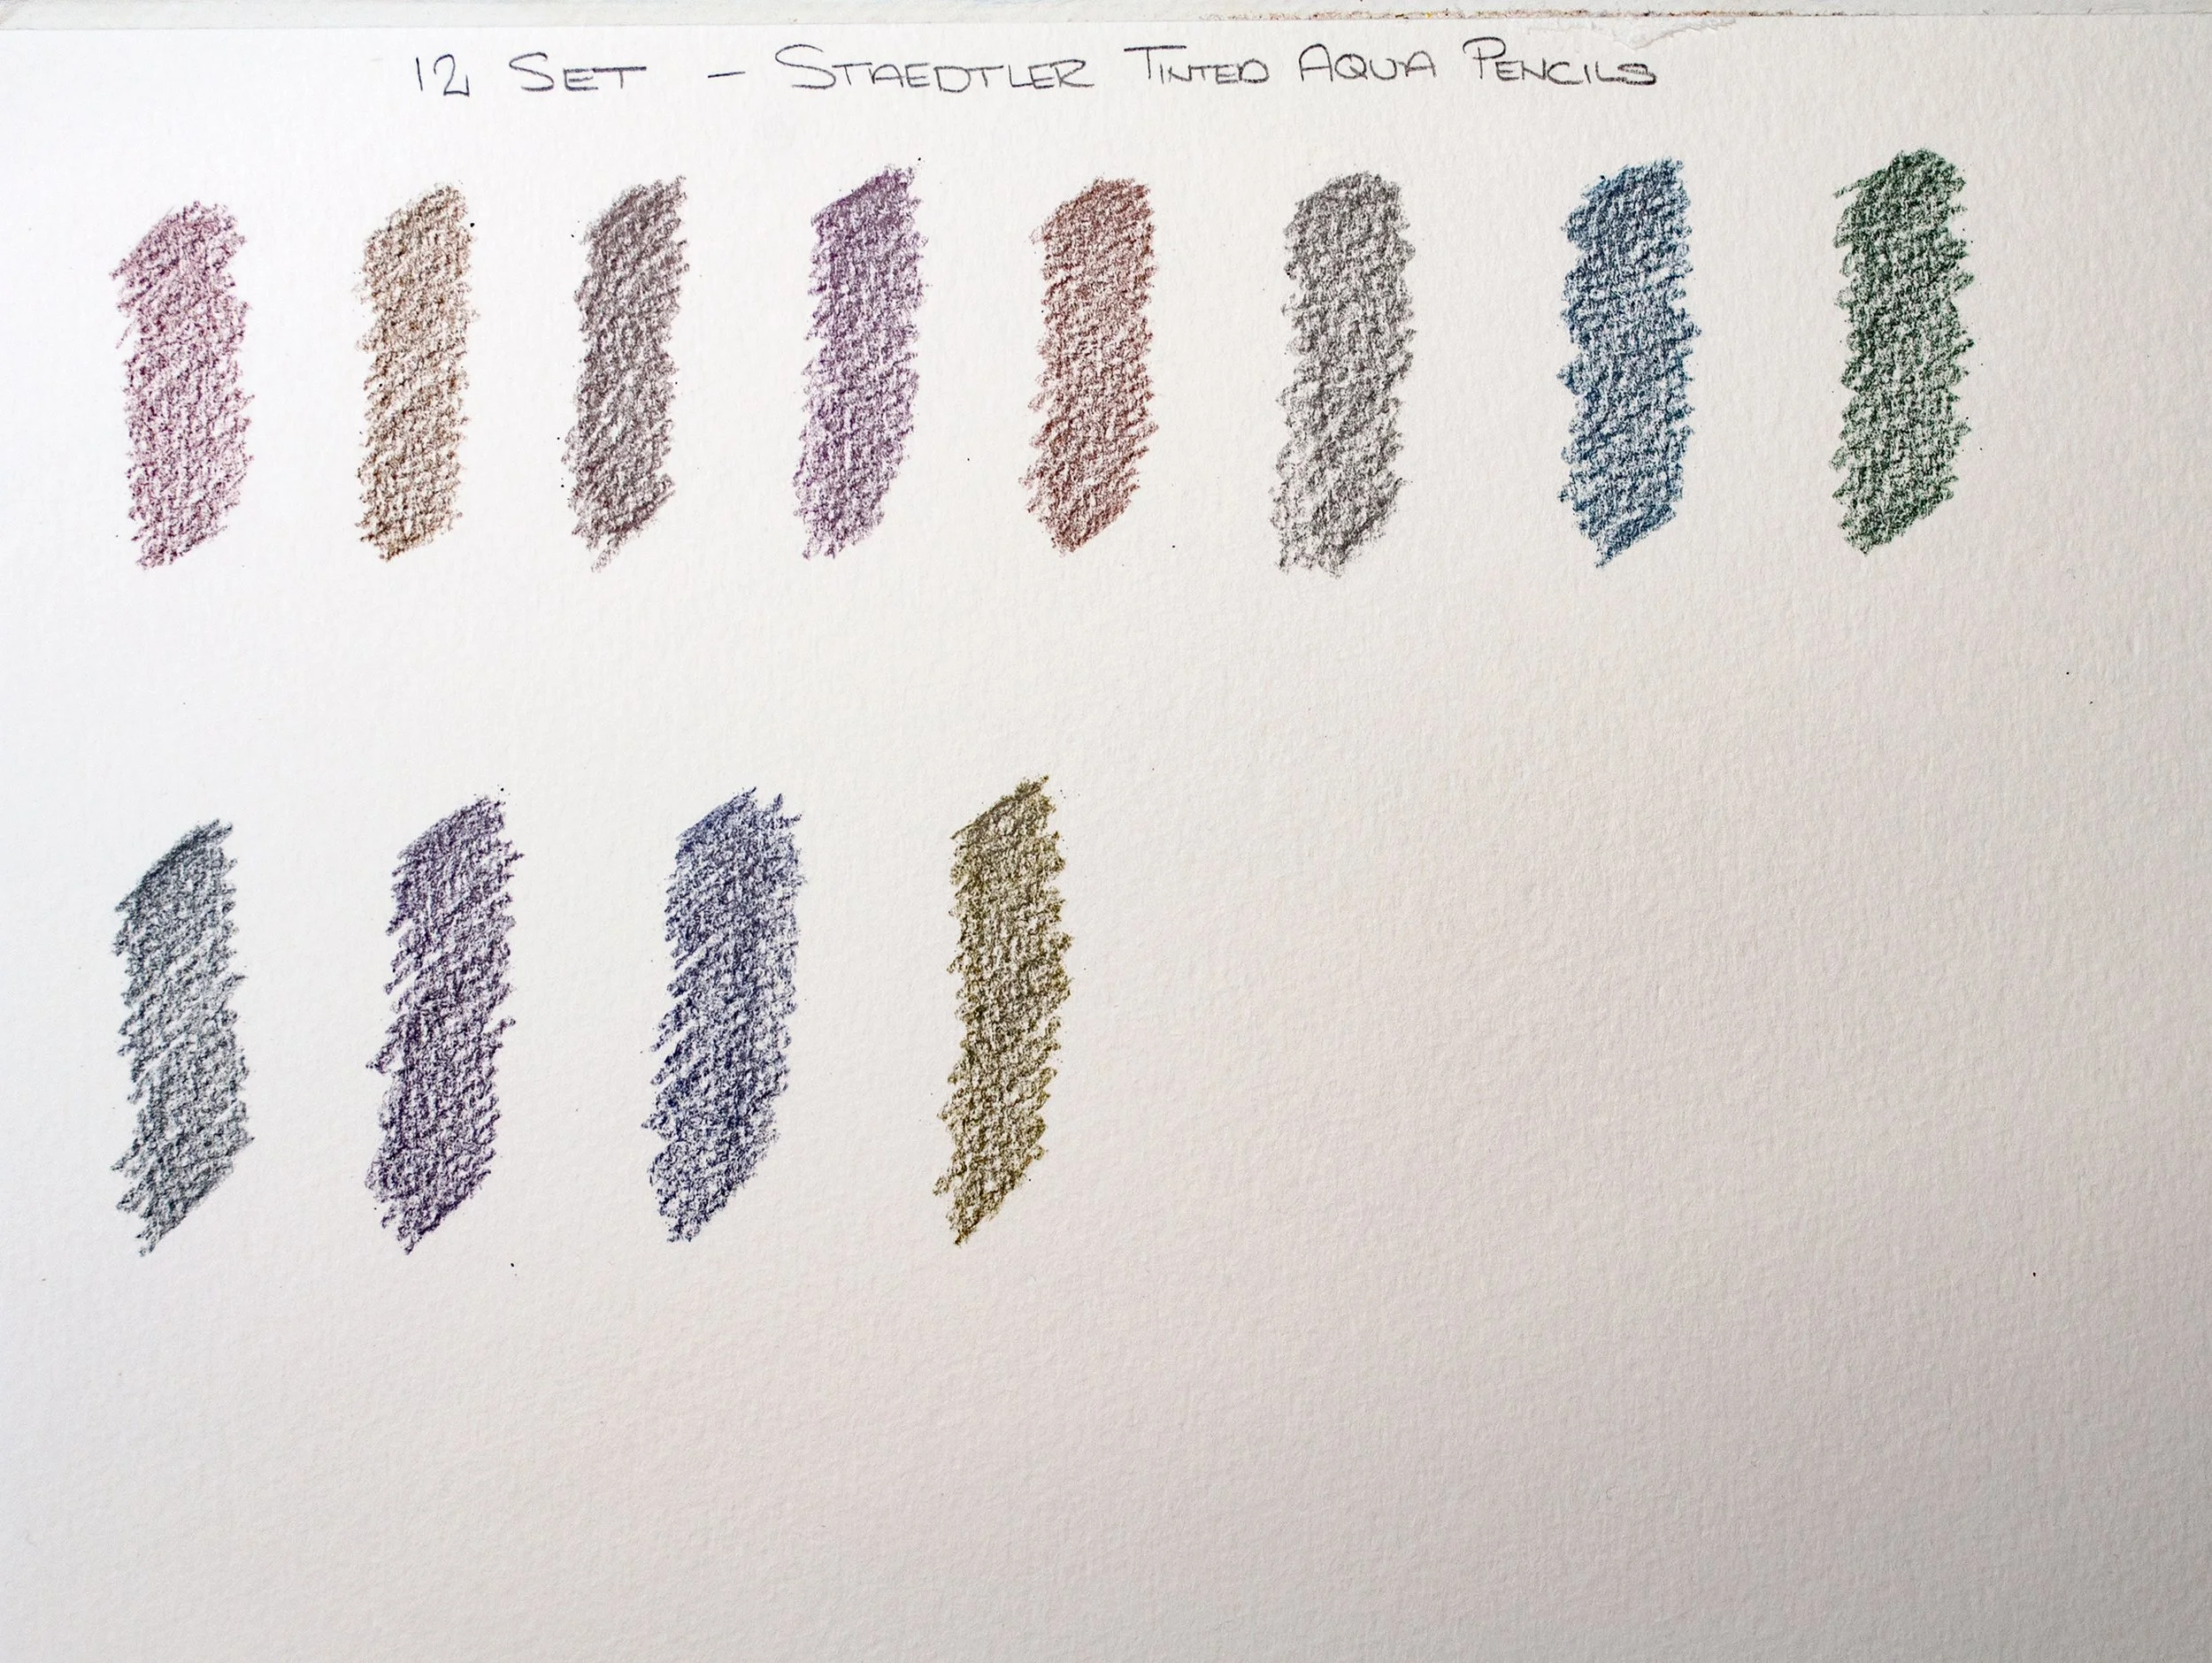 12 SET - STAEDTLER TINTED AQUA PENCILS